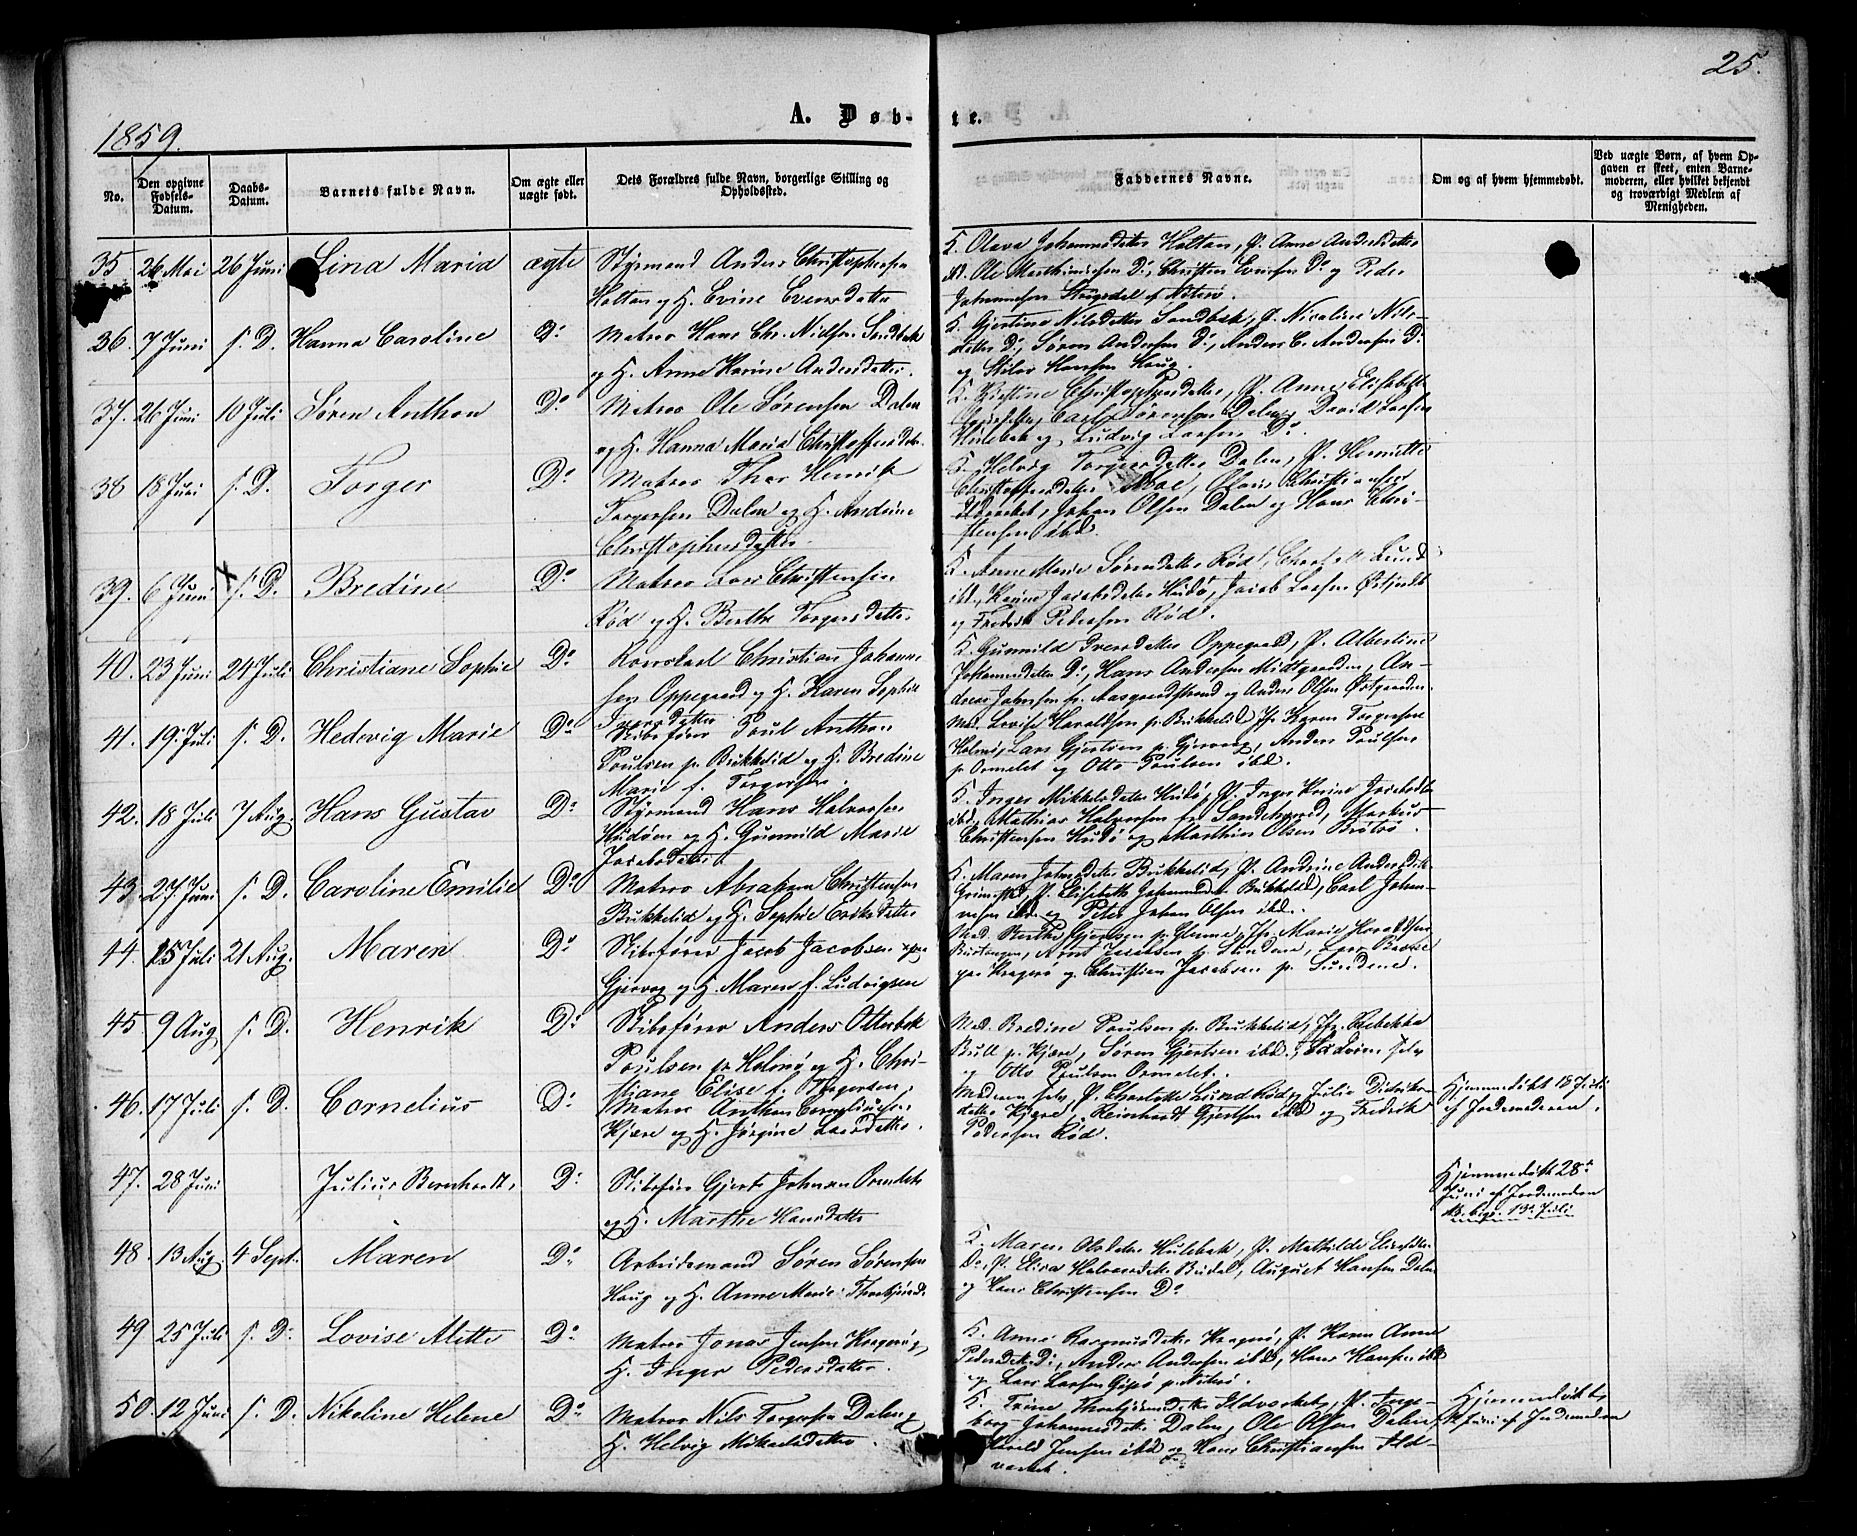 25.
A. Døb-
te.
1859.
No.
Den opgivne Fødsels-Datum.
Daabs-Datum.
Barnets fulde Navn.
Om ægte eller uægte født.
Dets Forældres fulde Navn, borgerlige Stilling og Opholdssted.
Faddernes Navne.
Om og af hvem hjemmedøbt.
Ved uægte Børn, af hvem Op-
gaven er skeet, enten Barne-
moderen, eller hvilket bekjendt
og troværdigt Medlem af
Menigheden.
35. 26 Mai 26 Juni Lina Maria ægte Styrmand Anders Christophersen
Holtan og H. Evine Evensdatter
K. Olava Johannesdatter Holtan, P. Anne Andersdatter
ibd. Ole Mathinisen Do, Christen Evensen Do og Peder
Johannesen af Nøterø.
36. 7 Juni s. D. Hanna Caroline Do Matros Hans Chr. Nielsen Sandbek
og H. Anne Karine Andersdatter.
K. Gjertine Nilsdatter Sandbæk, P. Nicoline Nils-
datter Do, Søren Andersen Do, Anders C. Andersen Do
og Hansen Haug.
37. 26 Juni 10 Juli Søren Anthon Do Matros Ole Sørensen Dalen
og H. Hanna Maria Christoffersdatter.
K. Christophersdatter, P. Anne Elisabeth
Carl Sørensen Dalen, David Larsen
Hulebak og Ludvig Larsen Do.
38 18 Juni s. D. Torger Do Matros Thor Henrik
Torgersen Dalen og H. Andrine
Christophersdatter.
K. Helvig Torgersdatter Dalen, P. Henriette
Christoffersdatter Christiansen
Ildvarket, Johan Olsen Dalen og Hans Chri-
stensen ibd.
39. 6 Juni s. D. Bredine Do Matros Lars Christensen
Rød og H. Berthe Torgersdatter.
K. Anne Marie Sørensdatter Rød, Lund
ibd., Karine Jacobsdatter Hudø, Jacob Larsen
og Fredrik Pedersen Rød.
40. 23 Juni 24 Juli Christiane Sophie Do Christian Johanne-
sen Oppegaard og H. Karen Sophie
Iversdatter
K. Gunnild Iversdatter Oppegaard, P. Albertine
Johannesdatter Do, Hans Andersen Midtgaarden, An-
dreas Johnsen fr. Aasgaardstrand og Anders Olsen Østgaarden.
41. 19 Juli s. D. Hedevig Marie Do Skibsfører Poul Anthon
Poulsen p. Bukkelid og H. Bredine
Marie f. Torgersen.
Mad. Lovise Haraldsen p. Bukkelid, Jfr. Karen Torgersen
Holmø, Lars Gjertsen p. Gjervog, Anders Poulsen
p. Ormelet og Otto Poulsen ibd.
42. 18 Juli 7 Aug. Hans Gustav Do Styrmand Hans Halvorsen
Hudøen og H. Gunnild Marie
Jacobsdatter
K. Inger Mikkelsdatter Hudø, P. Inger Karine Jacobsdtr
ibd., Mathias Halvorsen fr. Sandeherred, Markus
Christensen Hudø og Mathias Olsen Brøtsø.
43. 27 Juni s. D. Caroline Emilie Do Matros Abraham Christensen
Bukkelid og H. Sophie Eriksdatter
K. Maren Johnsdatter Bukkelid, P. Andrine Andersdtr
Grimestad, P. Elisabeth Johannesdtr Bukkelid, Carl Johan-
nesen ibd. og Peter Johan Olsen ibd.
44. 15 Juli 21 Aug. Maren Do Skibsfører Jacob Jacobsen
Gjervog og H. Maren f. Ludvigsen
Mad. Berthe Gjertsen p. Glenne, Jfr. Marie Haraldsen
Bustangen, p. Sundene, Lars
Kragerø og Christian Jacobsen p. Sundene.
45. 9 Aug s. D. Henrik Do Skibsfører Anders Otterbek
Poulsen p. Holmø og H. Chri-
stiane Elise f. Torgersen.
Mad. Bredine Poulsen p. Bukkelid, Jfr. Rebekka
Bull p. Kjære, Søren Gjertsen ibd., Faderen selv
og Otto Poulsen Ormelet.
46. 17 Juli s. D. Cornelius Do Matros Anthon Corneliusen
Kjære og H. Jørgine Larsdatter.
Moderen selv, P. Charlotte Lund Rød, Julie Didriks-
datter Kjære, Reinhardt Gjertsen ibd og Fredrik
Pedersen Rød.
Hjemmedøbt 18 Juli
af Jordemoderen.
47. 28 Juni Julius Bernhardt, Do Skibsfører Gjert Johnsen Ormelet
og H. Marthe Hansdatter
Hjemmedøbt 28de
Juni af Jordemoderen
13de Juli
48. 13 Aug. 4 Sept. Maren Do Arbeidsmand Søren Sørensen
Haug og H. Anne Marie Thorbjørnsd.
K. Maren Olsdatter Hulebak, P. Mathilde
Do, P. Elisa Halvorsdtr Budal, August Hansen Dalen
og Hans Christensen Do
49 25 Juli s. D. Lovise Alette Do Matros Jonas Jensen Kragerø og
H. Inger Pedersdatter.
K. Anne Rasmusdatter Kragerø, P. Karen Anne
Pedersdatter Do, Anders Andersen ibd, Hans Hansen ibd
og Lars Larsen Gipø p. Nøterø.
50. 12 Juni s. D. Nikoline Helene Do Matros Nils Torgersen Dalen og
H. Helvig Mikkelsdatter.
K. Trine Thorbjørnsdatter Ildvarket, P. Inge-
borg Johannesdatter Dalen, Ole Olsen Dalen,
Jensen ibd og Hans Christiansen Ild-
varket.
Hjemmedøbt
Juni af Jordemoderen